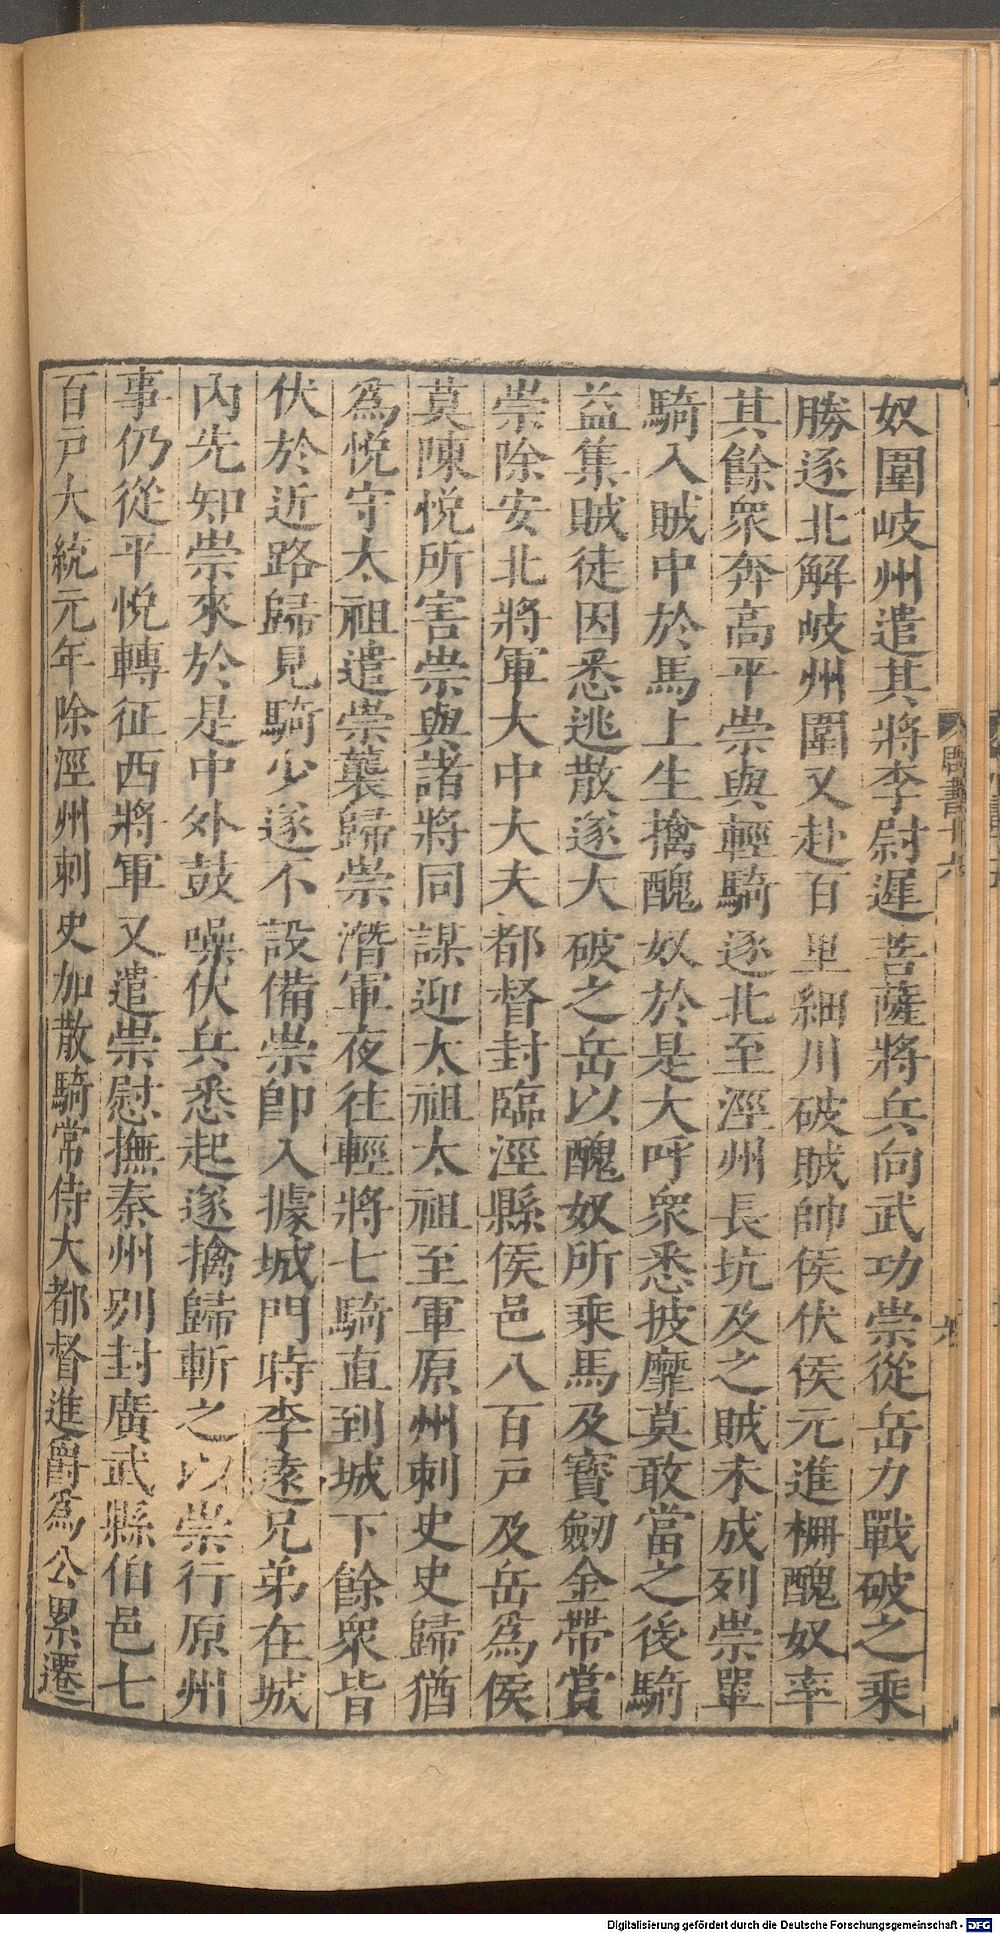 奴圍岐州遣其將李尉遲菩薩將兵向武功崇從岳力戰破之乘
勝逐北解岐州圍又赴百里細川破賊帥侯伏侯元進柵醜奴率
其餘衆奔高平崇與輕騎逐北至涇州長坑及之賊未成列崇單
騎入賊中於馬上生擒醜奴於是大呼衆悉披靡莫敢當之後騎
益集賊徒因悉逃散遂大破之岳以醜奴所乘馬及寶劒金帶賞
崇除安北將軍大中大夫都督封臨涇縣侯邑八百戸及岳爲侯
莫陳悅所害崇與諸將同謀迎太祖太祖至軍原州刺史史歸猶
爲悅守太祖遣崇襲歸崇潛軍夜往輕將七騎直到城下餘衆皆
伏於近路歸見騎少遂不設備崇卽入據城門時李遠兄弟在城
內先知崇來於是中外鼓噪伏兵悉起遂擒歸斬之以崇行原州
事仍從平悅轉征西將軍又遣崇慰撫秦州別封廣武縣伯邑七
百戸大統元年除涇州刺史加散騎常侍大都督進爵爲公累遷
Digitalisierung gefördert durch die Deutsche Forschungsgemeinschaft - DFG